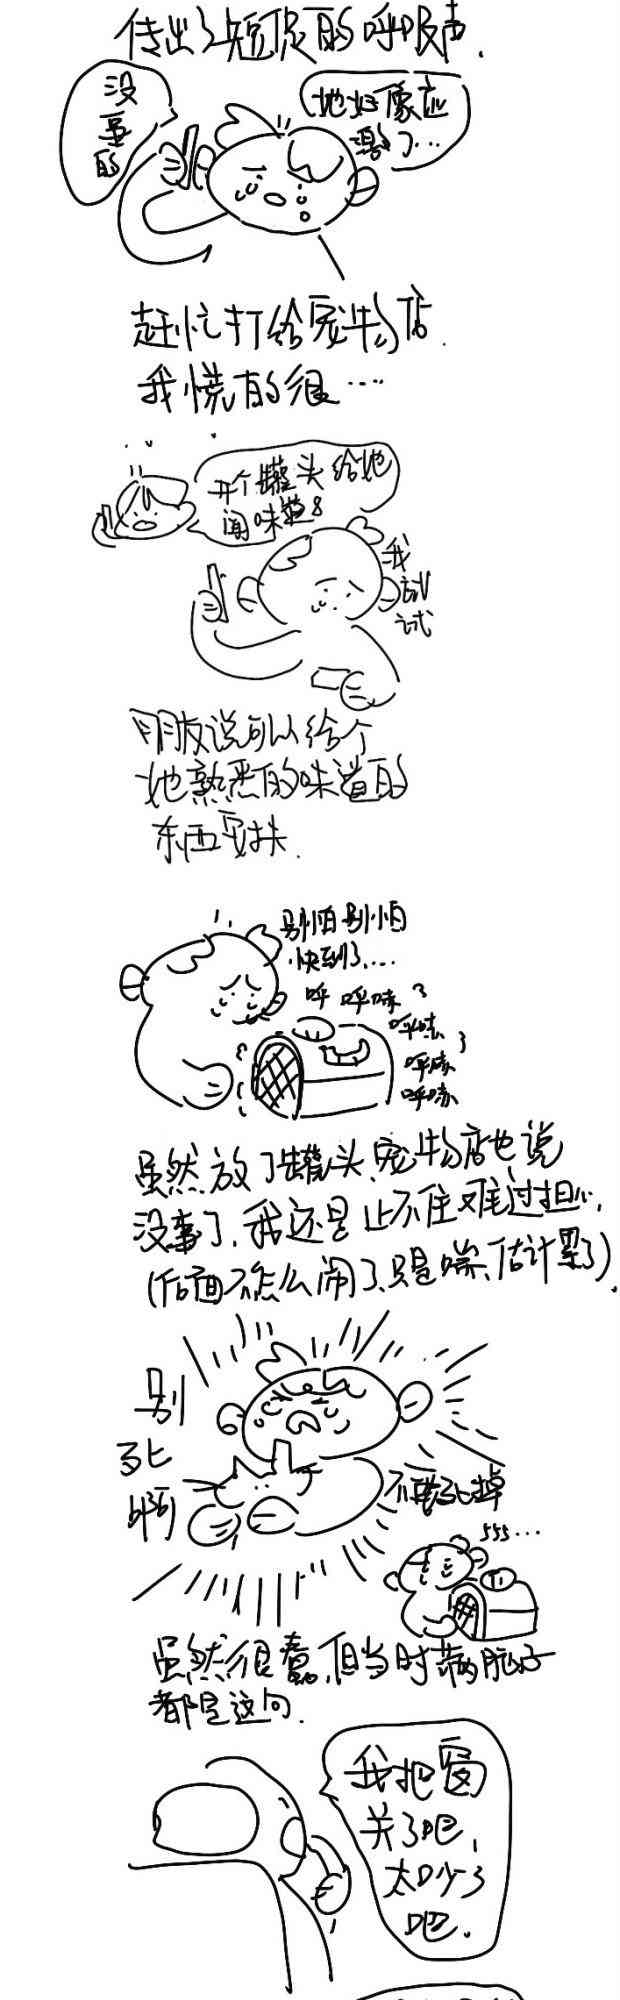 传出了短促的呼吸声.
没
事
的
她好像应
激了…
赶忙打给宠物店.
我慌的很…
开个罐头给她
闻味道
我
试
试
朋友说可以给个
她熟悉的味道的
东西安抚.
别怕别怕
快到了…
呼 呼哧
呼哧
呼哧
呼哧
虽然放了罐头,宠物店也说
没事了,我还是止不住难过担心,
(后面不怎么闹了,只是喘,估计累了).
别
死
啊
不要死掉
555…
虽然很蠢,但当时满脑子
都是这句.
我把窗
关了吧,
太吵了
吧.